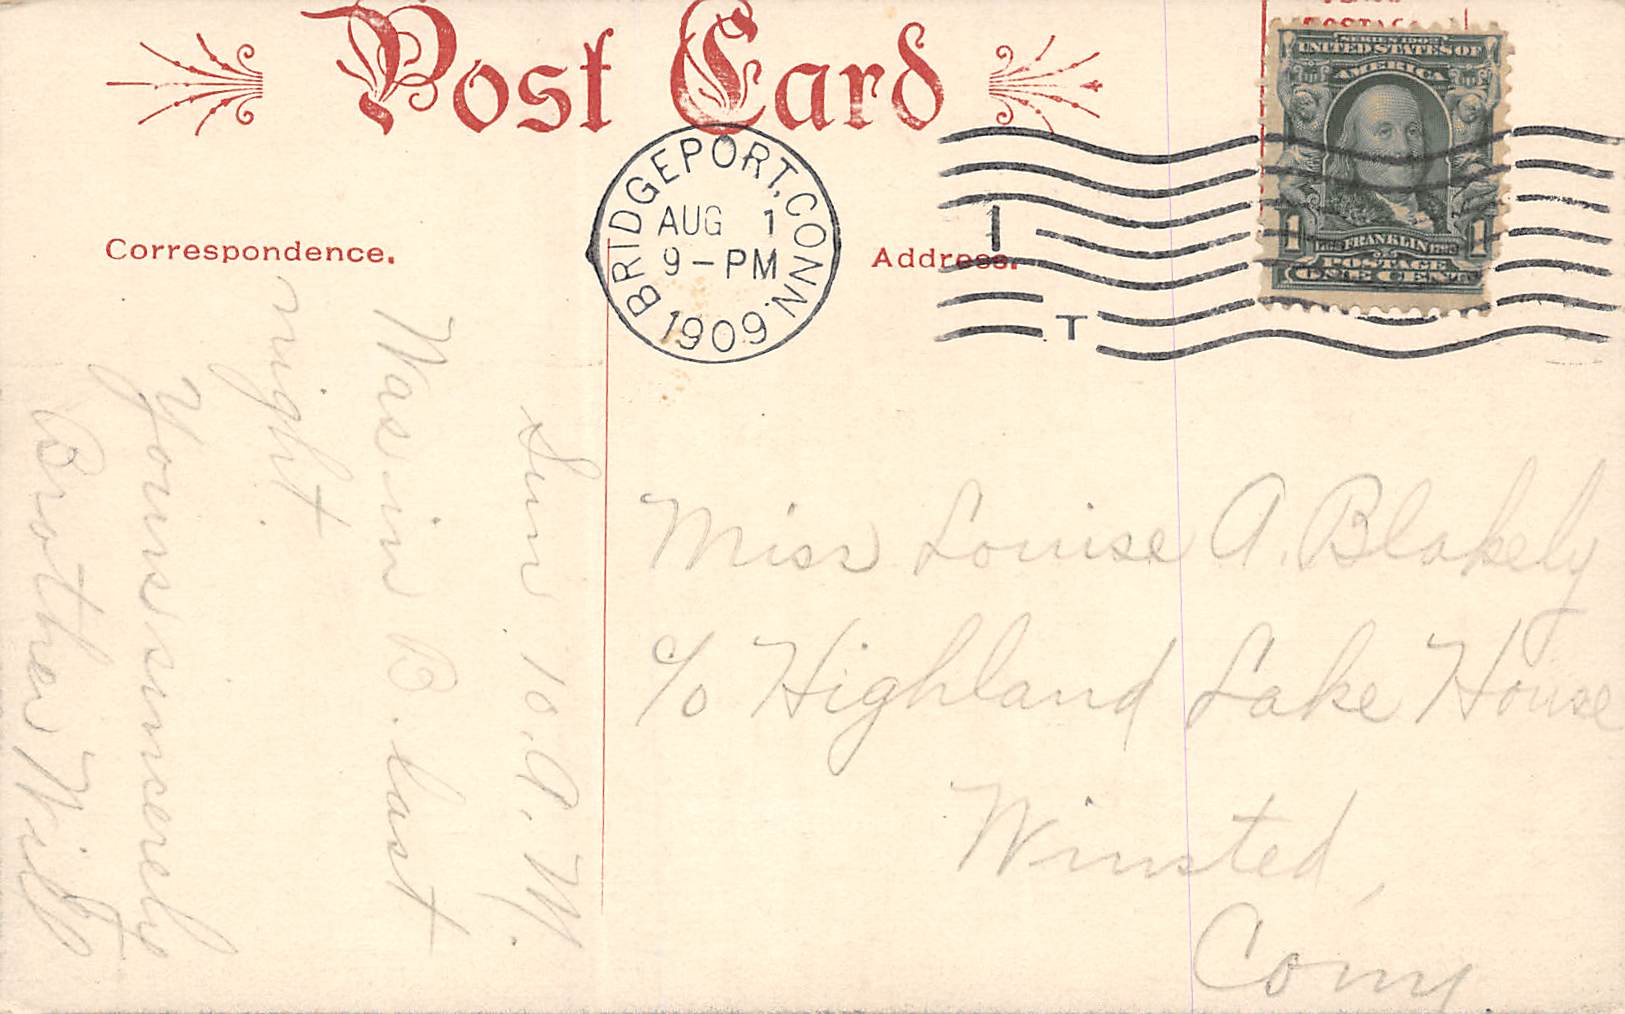 Post Card
BRIDGEPORT, CONN.
AUG 1
9-PM
1909
1
T
SERIES 1902
UNITED STATES OF
AMERICA
1 FRANKLIN 1
POSTAGE
ONE CENT
Correspondence.
Address.
Sun 10. A. M.
Was in B. last
night
Yours sincerely
Brother Will
Miss Louise A. Blakely
c/o Highland Lake House
Winsted,
Conn